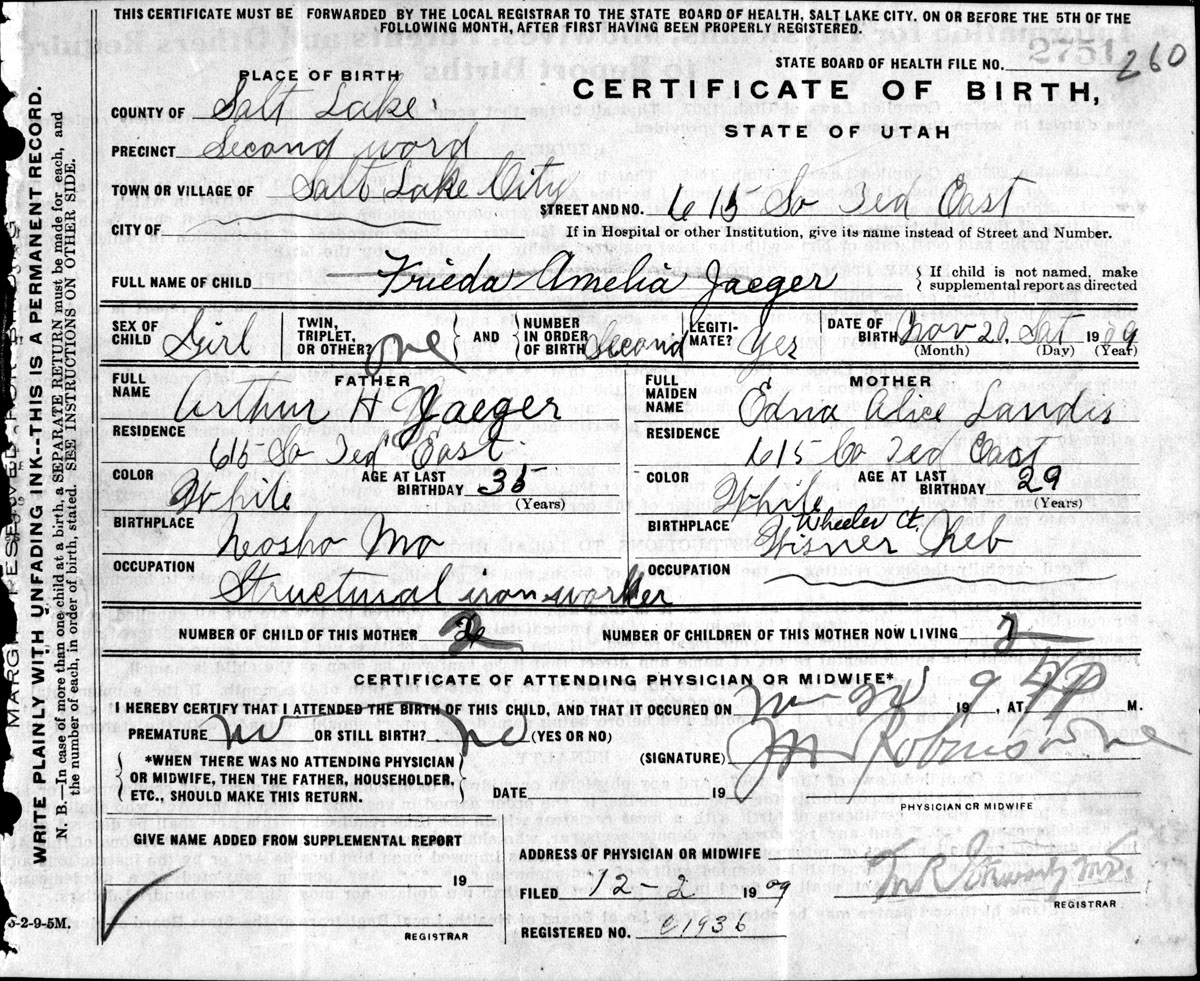 THIS CERTIFICATE MUST BE FORWARDED BY THE LOCAL REGISTRAR TO THE STATE BOARD OF HEALTH, SALT LAKE CITY. ON OR BEFORE THE 5TH OF THE
FOLLOWING MONTH, AFTER FIRST HAVING BEEN PROPERLY REGISTERED.
STATE BOARD OF HEALTH FILE NO. 260
2751
PLACE OF BIRTH
CERTIFICATE OF BIRTH,
STATE OF UTAH
COUNTY OF Salt Lake
PRECINCT Second word
TOWN OR VILLAGE OF Salt Lake City
STREET AND NO. 615 So East
CITY OF
If in Hospital or other Institution, give its name instead of Street and Number.
FULL NAME OF CHILD Frieda Amelia Jaeger
{ If child is not named, make
supplemental report as directed
SEX OF CHILD Girl
TWIN, TRIPLET, OR OTHER? one
AND
NUMBER IN ORDER OF BIRTH Second
LEGITI-MATE? Yes
DATE OF BIRTH Nov 20, Sat 1909
(Month) (Day) (Year)
FATHER
FULL NAME Arthur H Jaeger
RESIDENCE 615 So East
COLOR White
AGE AT LAST BIRTHDAY 35
(Years)
BIRTHPLACE Neosho Mo
OCCUPATION Structural iron worker
MOTHER
FULL MAIDEN NAME Edna Alice Landis
RESIDENCE 615 So East
COLOR White
AGE AT LAST BIRTHDAY 29
(Years)
BIRTHPLACE Wheeler Ct.
Wisner Neb
OCCUPATION
NUMBER OF CHILD OF THIS MOTHER 2
NUMBER OF CHILDREN OF THIS MOTHER NOW LIVING 2
CERTIFICATE OF ATTENDING PHYSICIAN OR MIDWIFE*
I HEREBY CERTIFY THAT I ATTENDED THE BIRTH OF THIS CHILD, AND THAT IT OCCURED ON 19 9, AT M.
PREMATURE no OR STILL BIRTH? no (YES OR NO)
(SIGNATURE)
*WHEN THERE WAS NO ATTENDING PHYSICIAN
OR MIDWIFE, THEN THE FATHER, HOUSEHOLDER,
ETC., SHOULD MAKE THIS RETURN.
DATE 19
PHYSICIAN OR MIDWIFE
GIVE NAME ADDED FROM SUPPLEMENTAL REPORT
19
REGISTRAR
ADDRESS OF PHYSICIAN OR MIDWIFE
FILED 12-2 1909
REGISTRAR
REGISTERED NO. e1936
6-2-9-5M.
MARGIN RESERVED FOR BINDING
WRITE PLAINLY WITH UNFADING INK--THIS IS A PERMANENT RECORD.
N. B.—In case of more than one child at a birth, a SEPARATE RETURN must be made for each, and
the number of each, in order of birth, stated. SEE INSTRUCTIONS ON OTHER SIDE.